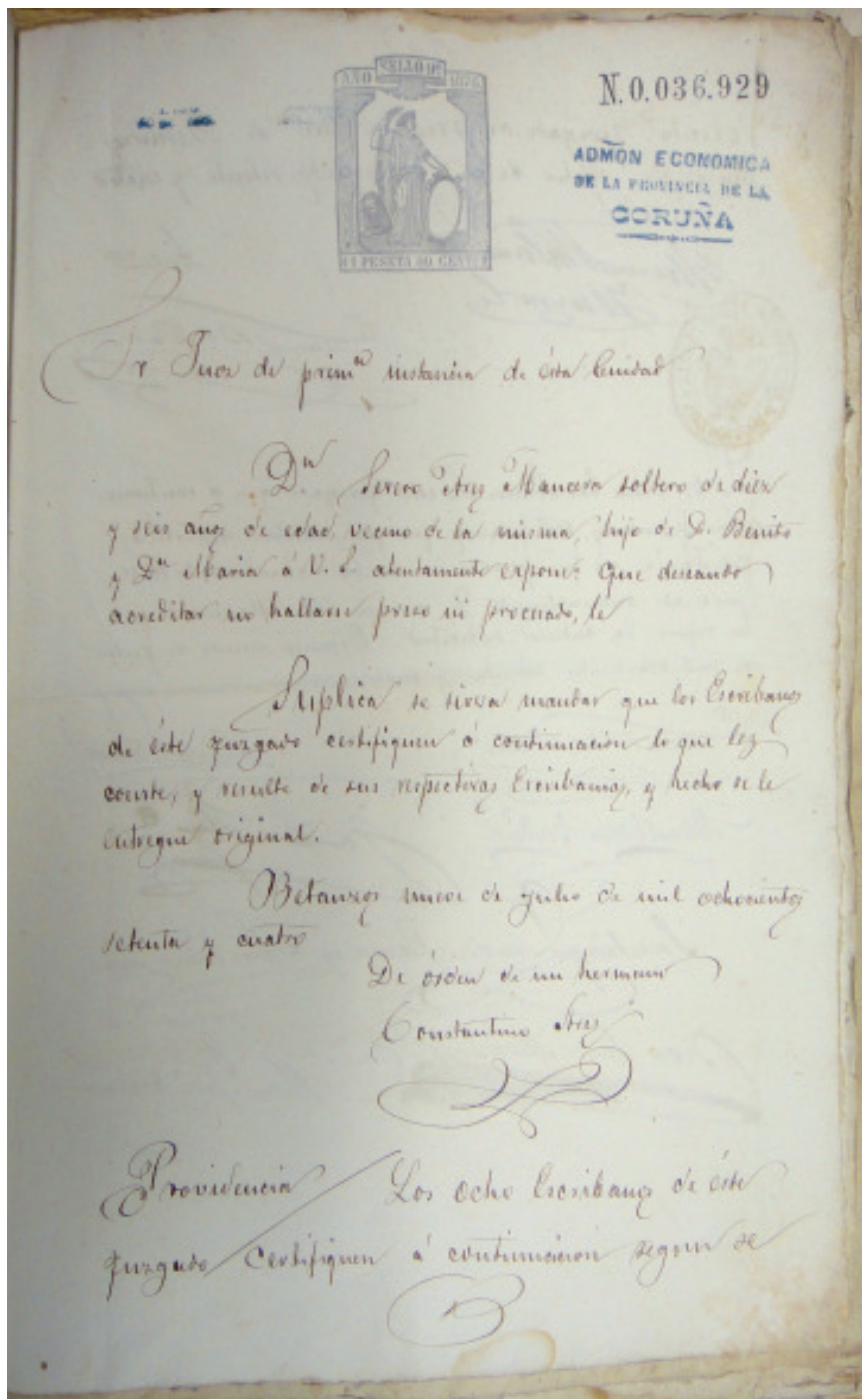 AÑO SELLO 9º 187
N.0,036.929
ADMÓN ECONOMICA
DE LA PROVINCIA DE LA
CORUÑA
1 PESETA 50 CENT
Sr Juez de prim.ª instancia de ésta Ciudad
D.n Severo Ares Mancera soltero de diez
y seis años de edad vecino de la misma, hijo de D. Benito
y D.ª Maria á V. S. atentamente expone: Que deseando
acreditar no hallarse preso ni procesado, le
Suplica se sirva mandar que los Escribanos
de éste juzgado certifiquen á continuación lo que les
conste, y resulte de sus respectivas Escribanias, y hecho se le
entregue original.
Betanzos nueve de julio de mil ochocientos
setenta y cuatro
De órden de mi hermano
Constantino Ares
Providencia / Los ocho Escribanos de éste
juzgado certifiquen á continuación segun se